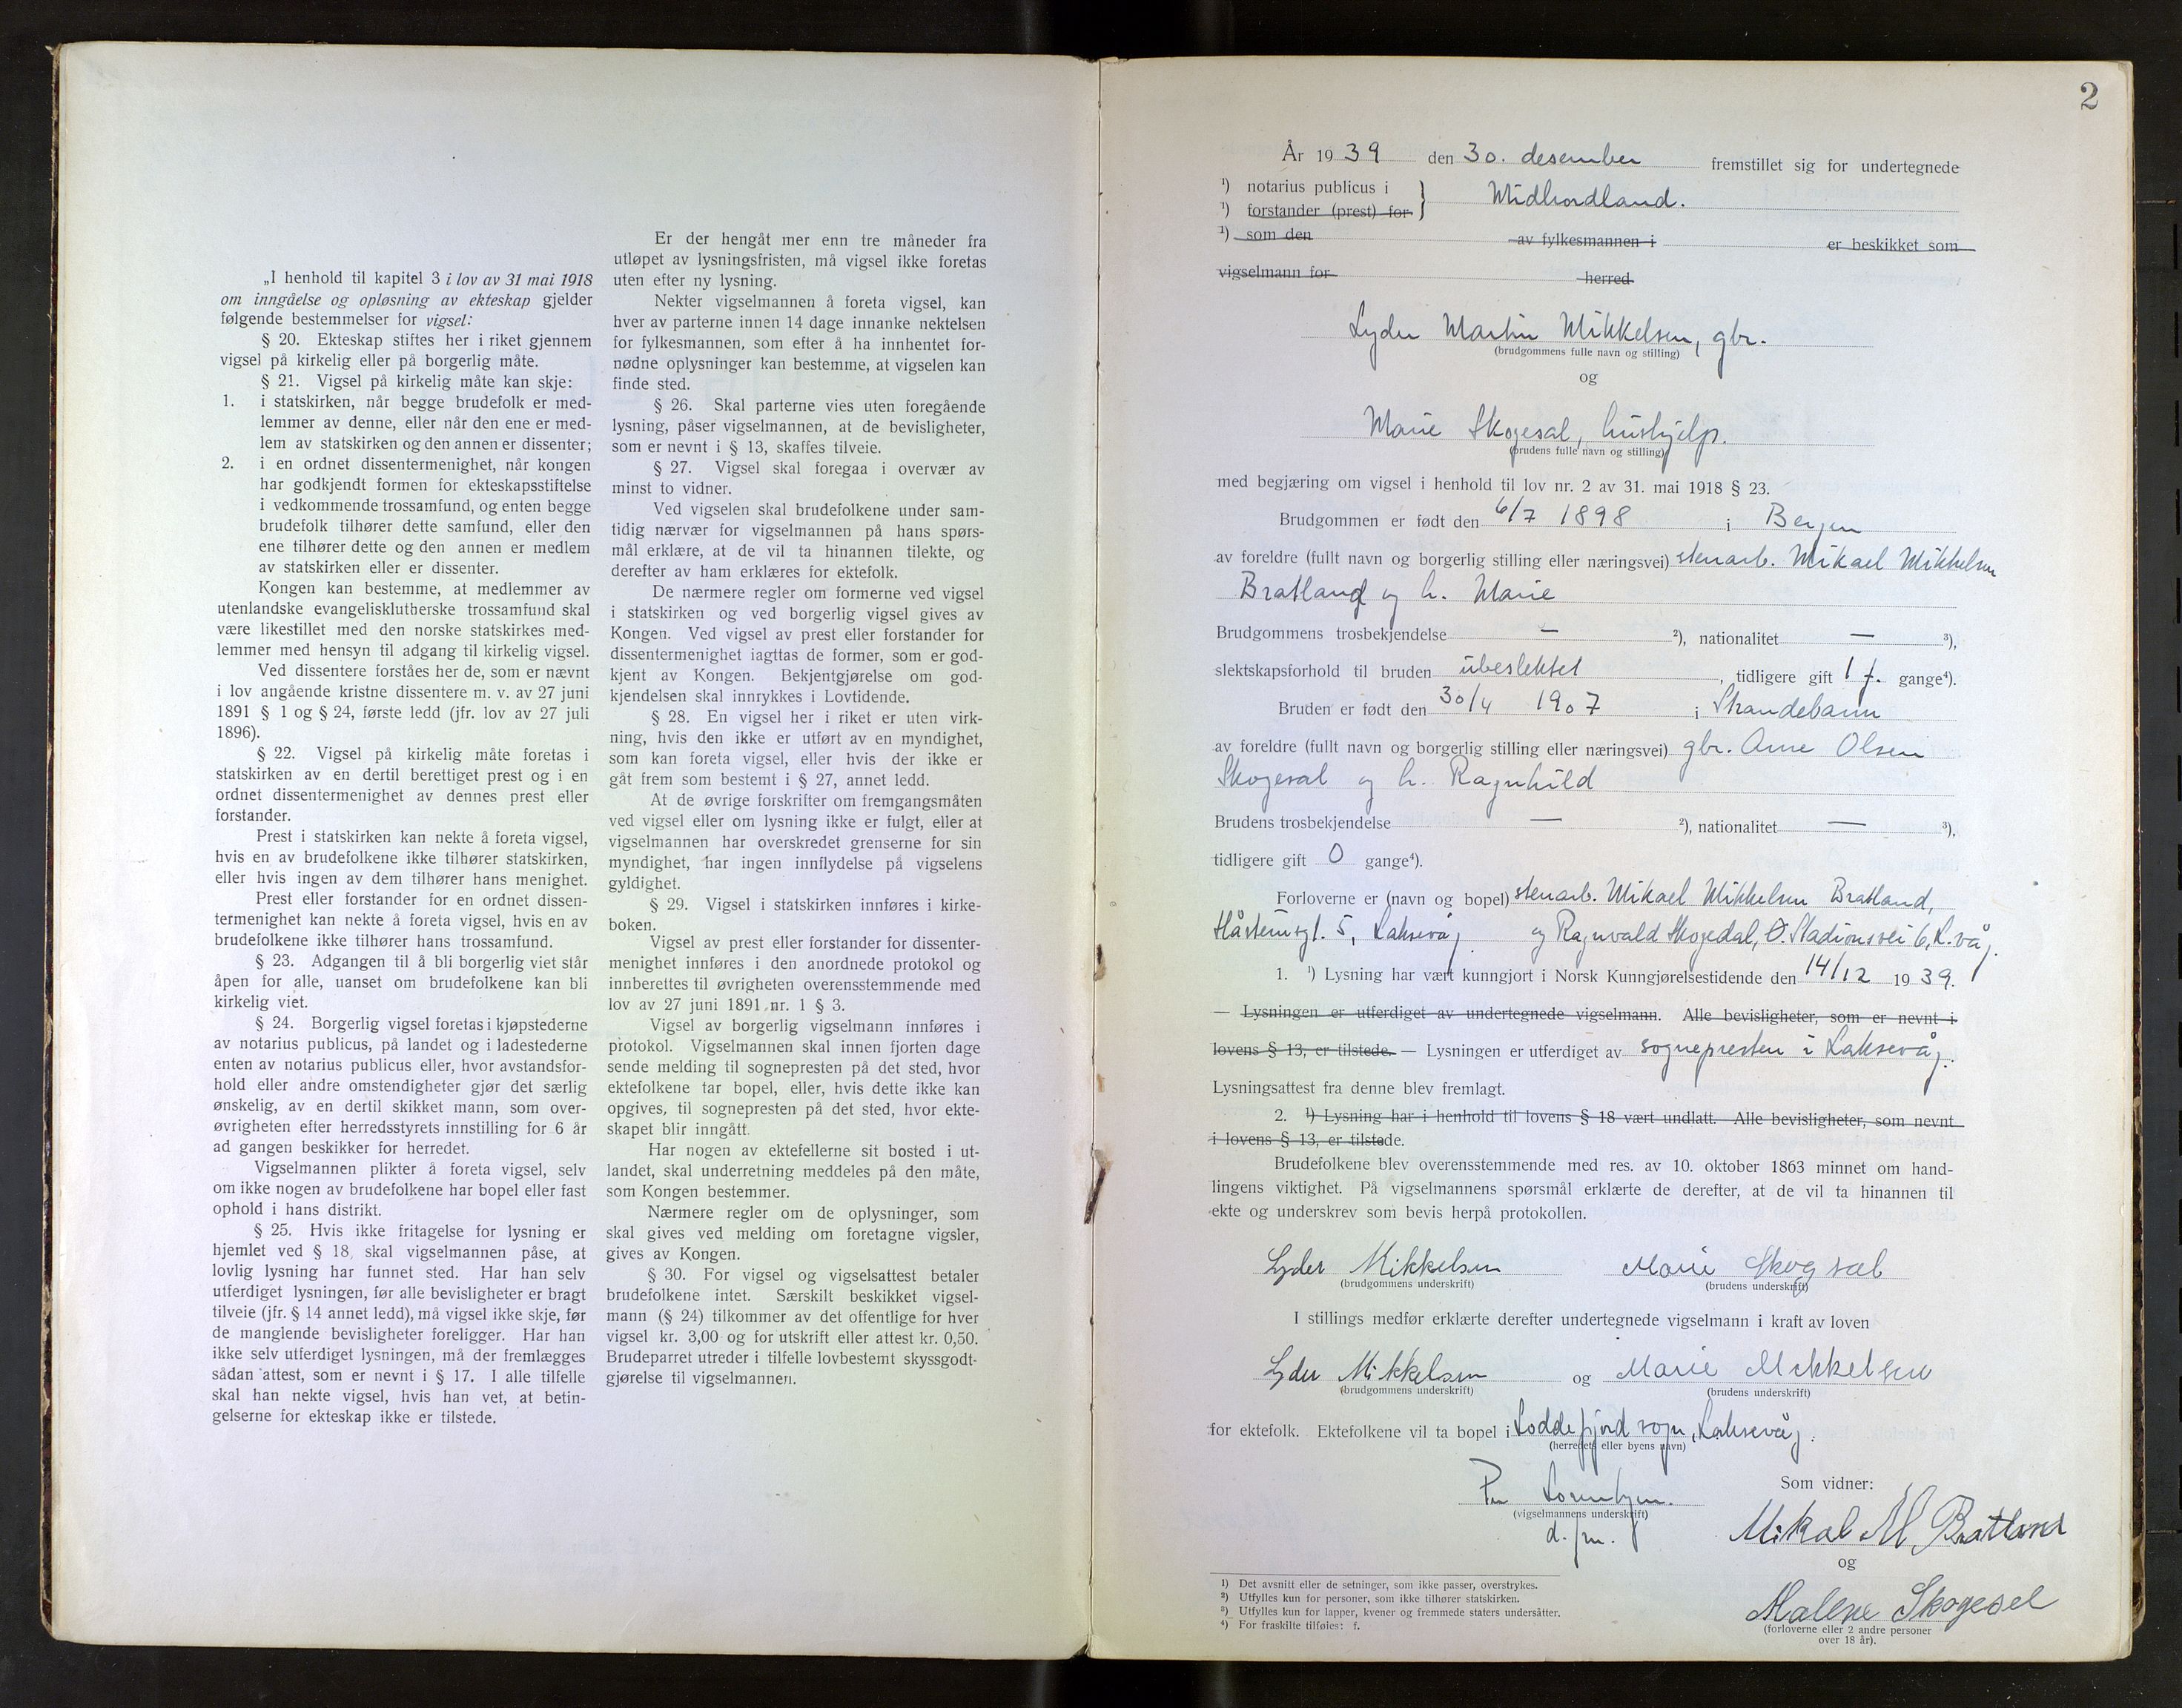 „I henhold til kapitel 3 i lov av 31 mai 1918
om inngåelse og opløsning av ekteskap gjelder
følgende bestemmelser for vigsel:
§ 20. Ekteskap stiftes her i riket gjennem
vigsel på kirkelig eller på borgerlig måte.
§ 21. Vigsel på kirkelig måte kan skje:
1. i statskirken, når begge brudefolk er med-
lemmer av denne, eller når den ene er med-
lem av statskirken og den annen er dissenter;
2. i en ordnet dissentermenighet, når kongen
har godkjendt formen for ekteskapsstiftelse
i vedkommende trossamfund, og enten begge
brudefolk tilhører dette samfund, eller den
ene tilhører dette og den annen er medlem
av statskirken eller er dissenter.
Kongen kan bestemme, at medlemmer av
utenlandske evangelisklutherske trossamfund skal
være likestillet med den norske statskirkes med-
lemmer med hensyn til adgang til kirkelig vigsel.
Ved dissentere forståes her de, som er nævnt
i lov angående kristne dissentere m. v. av 27 juni
1891 § 1 og § 24, første ledd (jfr. lov av 27 juli
1896).
§ 22. Vigsel på kirkelig måte foretas i
statskirken av en dertil berettiget prest og i en
ordnet dissentermenighet av dennes prest eller
forstander.
Prest i statskirken kan nekte å foreta vigsel,
hvis en av brudefolkene ikke tilhører statskirken,
eller hvis ingen av dem tilhører hans menighet.
Prest eller forstander for en ordnet dissen-
termenighet kan nekte å foreta vigsel, hvis en av
brudefolkene ikke tilhører hans trossamfund.
§ 23. Adgangen til å bli borgerlig viet står
åpen for alle, uanset om brudefolkene kan bli
kirkelig viet.
§ 24. Borgerlig vigsel foretas i kjøpstederne
av notarius publicus, på landet og i ladestederne
enten av notarius publicus eller, hvor avstandsfor-
hold eller andre omstendigheter gjør det særlig
ønskelig, av en dertil skikket mann, som over-
øvrigheten efter herredsstyrets innstilling for 6 år
ad gangen beskikker for herredet.
Vigselmannen plikter å foreta vigsel, selv
om ikke nogen av brudefolkene har bopel eller fast
ophold i hans distrikt.
§ 25. Hvis ikke fritagelse for lysning er
hjemlet ved § 18, skal vigselmannen påse, at
lovlig lysning har funnet sted. Har han selv
utferdiget lysningen, før alle bevisligheter er bragt
tilveie (jfr. § 14 annet ledd), må vigsel ikke skje, før
de manglende bevisligheter foreligger. Har han
ikke selv utferdiget lysningen, må der fremlægges
sådan attest, som er nevnt i § 17. I alle tilfelle
skal han nekte vigsel, hvis han vet, at betin-
gelserne for ekteskap ikke er tilstede.
Er der hengåt mer enn tre måneder fra
utløpet av lysningsfristen, må vigsel ikke foretas
uten efter ny lysning.
Nekter vigselmannen å foreta vigsel, kan
hver av parterne innen 14 dage innanke nektelsen
for fylkesmannen, som efter å ha innhentet for-
nødne oplysninger kan bestemme, at vigselen kan
finde sted.
§ 26. Skal parterne vies uten foregående
lysning, påser vigselmannen, at de bevisligheter,
som er nevnt i § 13, skaffes tilveie.
§ 27. Vigsel skal foregaa i overvær av
minst to vidner.
Ved vigselen skal brudefolkene under sam-
tidig nærvær for vigselmannen på hans spørs-
mål erklære, at de vil ta hinannen tilekte, og
derefter av ham erklæres for ektefolk.
De nærmere regler om formerne ved vigsel
i statskirken og ved borgerlig vigsel gives av
Kongen. Ved vigsel av prest eller forstander for
dissentermenighet iagttas de former, som er god-
kjent av Kongen. Bekjentgjørelse om god-
kjendelsen skal innrykkes i Lovtidende.
§ 28. En vigsel her i riket er uten virk-
ning, hvis den ikke er utført av en myndighet,
som kan foreta vigsel, eller hvis der ikke er
gåt frem som bestemt i § 27, annet ledd.
At de øvrige forskrifter om fremgangsmåten
ved vigsel eller om lysning ikke er fulgt, eller at
vigselmannen har overskredet grenserne for sin
myndighet, har ingen innflydelse på vigselens
gyldighet.
§ 29. Vigsel i statskirken innføres i kirke-
boken.
Vigsel av prest eller forstander for dissenter-
menighet innføres i den anordnede protokol og
innberettes til øvrigheten overensstemmende med
lov av 27 juni 1891 nr. 1 § 3.
Vigsel av borgerlig vigselmann innføres i
protokol. Vigselmannen skal innen fjorten dage
sende melding til sognepresten på det sted, hvor
ektefolkene tar bopel, eller, hvis dette ikke kan
opgives, til sognepresten på det sted, hvor ekte-
skapet blir inngått.
Har nogen av ektefellerne sit bosted i ut-
landet, skal underretning meddeles på den måte,
som Kongen bestemmer.
Nærmere regler om de oplysninger, som
skal gives ved melding om foretagne vigsler,
gives av Kongen.
§ 30. For vigsel og vigselsattest betaler
brudefolkene intet. Særskilt beskikket vigsel-
mann (§ 24) tilkommer av det offentlige for hver
vigsel kr. 3,00 og for utskrift eller attest kr. 0,50.
Brudeparret utreder i tilfelle lovbestemt skyssgodt-
gjørelse til vigselmannen.
2
År 1939 den 30. desember fremstillet sig for undertegnede
¹) notarius publicus i
¹) forstander (prest) for } Midhordland.
¹) som den av fylkesmannen i er beskikket som
vigselmann for herred
Lyder Martin Mikkelsen, gbr.
(brudgommens fulle navn og stilling)
og
Marie Skogesal, hushjelp.
(brudens fulle navn og stilling)
med begjæring om vigsel i henhold til lov nr. 2 av 31. mai 1918 § 23.
Brudgommen er født den 6/7 1898 i Bergen
av foreldre (fullt navn og borgerlig stilling eller næringsvei) stenarb. Mikael Mikkelsen
Bratland og h. Marie
Brudgommens trosbekjendelse — ²), nationalitet — ³),
slektskapsforhold til bruden ubeslektet, tidligere gift 1 f. gange⁴).
Bruden er født den 30/4 1907 i Strandebarm
av foreldre (fullt navn og borgerlig stilling eller næringsvei) gbr. Arne Olsen
Skogesal og h. Ragnhild
Brudens trosbekjendelse — ²), nationalitet — ³),
tidligere gift 0 gange⁴).
Forloverne er (navn og bopel) stenarb. Mikael Mikkelsen Bratland,
Håsteinsgt. 5, Laksevåg og Ragnvald Skogedal, Ø. Stadionsvei 6, L.våg.
1. ¹) Lysning har vært kunngjort i Norsk Kunngjørelsestidende den 14/12 1939.
— Lysningen er utferdiget av undertegnede vigselmann. Alle bevisligheter, som er nevnt i
lovens § 13, er tilstede. — Lysningen er utferdiget av sognepresten i Laksevåg.
Lysningsattest fra denne blev fremlagt.
2. ¹) Lysning har i henhold til lovens § 18 vært undlatt. Alle bevisligheter, som nevnt
i lovens § 13, er tilstede.
Brudefolkene blev overensstemmende med res. av 10. oktober 1863 minnet om hand-
lingens viktighet. På vigselmannens spørsmål erklærte de derefter, at de vil ta hinannen til
ekte og underskrev som bevis herpå protokollen.
Lyder Mikkelsen Marie Skogesal
(brudgommens underskrift) (brudens underskrift)
I stillings medfør erklærte derefter undertegnede vigselmann i kraft av loven
Lyder Mikkelsen og Marie Mikkelsen
(brudgommens underskrift) (brudens underskrift)
for ektefolk. Ektefolkene vil ta bopel i Loddefjord sogn, Laksevåg.
(herredets eller byens navn)
Som vidner:
Per
(vigselmannens underskrift)
d.fm.
Mikal M Bratland
og
Malene Skogesel
(forloverne eller 2 andre personer
over 18 år).
¹) Det avsnitt eller de setninger, som ikke passer, overstrykes.
²) Utfylles kun for personer, som ikke tilhører statskirken.
³) Utfylles kun for lapper, kvener og fremmede staters undersåtter.
⁴) For fraskilte tilføies: f.